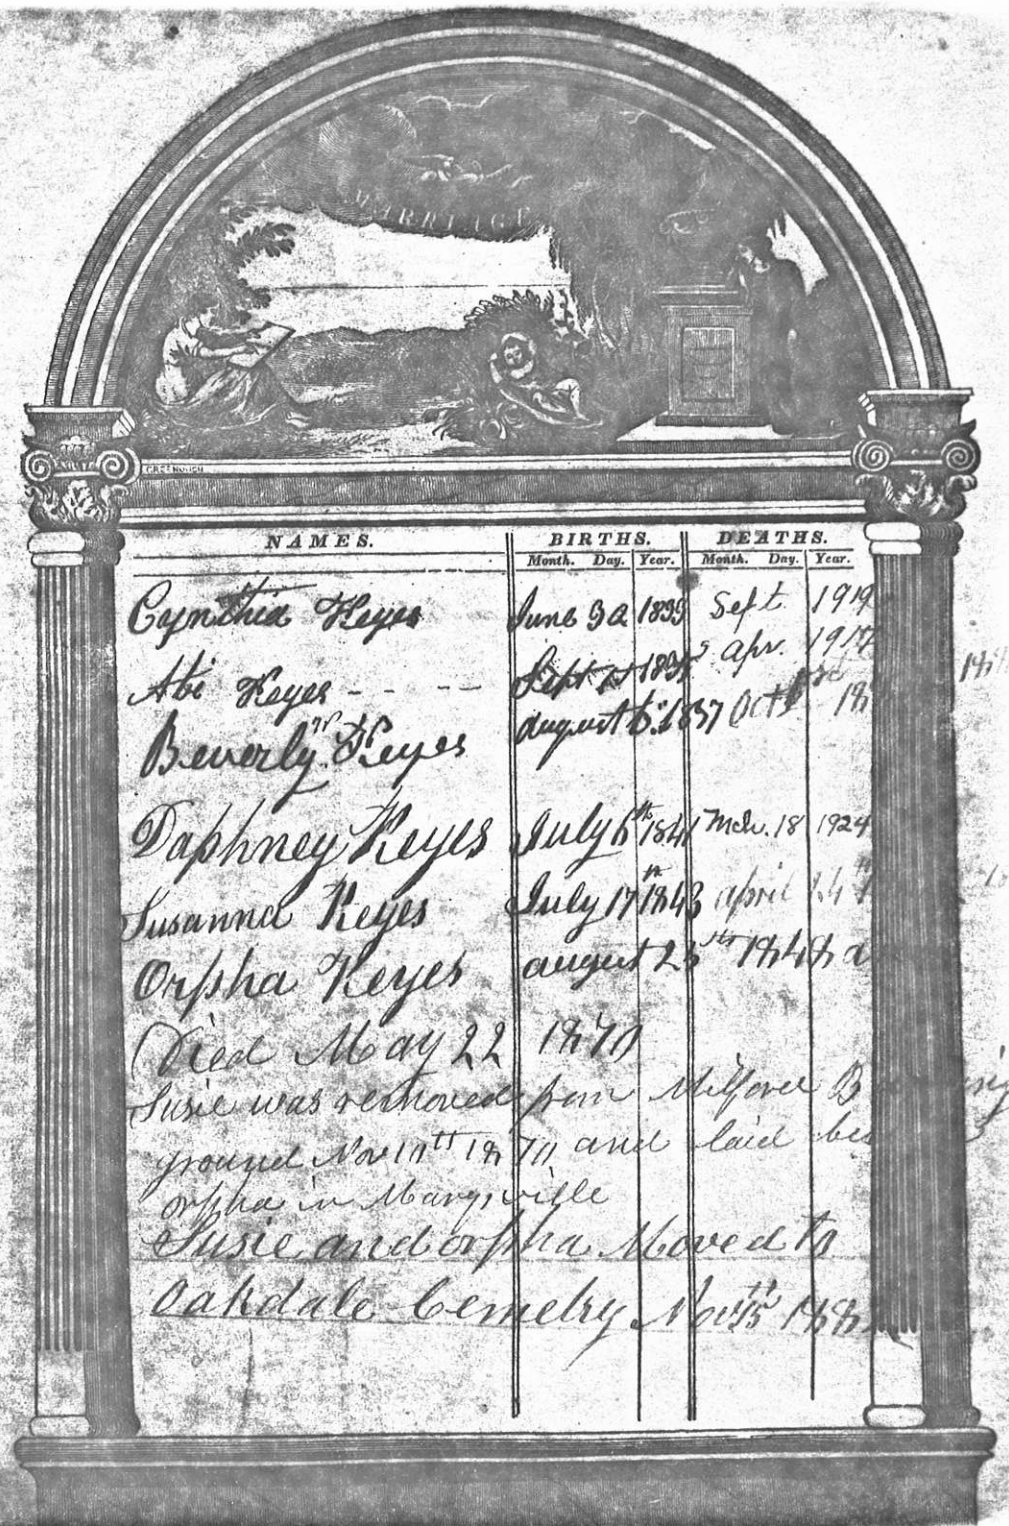 MARRIAGE
GREENOUGH
NAMES. BIRTHS. DEATHS.
Month. Day. Year. Month. Day. Year.
Cynthia Keyes June 30 1833 Sept. 1919
Abi Keyes - - - - Sept 1835 apr. 1917
Beverly W Keyes august 6th 1837 Oct
Daphney Keyes July 6th 1841 Mch. 18 1924
Susanna Keyes July 17th 1843 april
Orpha Keyes august 25th 1848 a
Died May 22 1870
Susie was removed from Milford B
ground Nov 10th 1870 and laid be
orpha in Marysville
Susie and orpha Moved to
Oakdale Cemetry Nov 15th 188